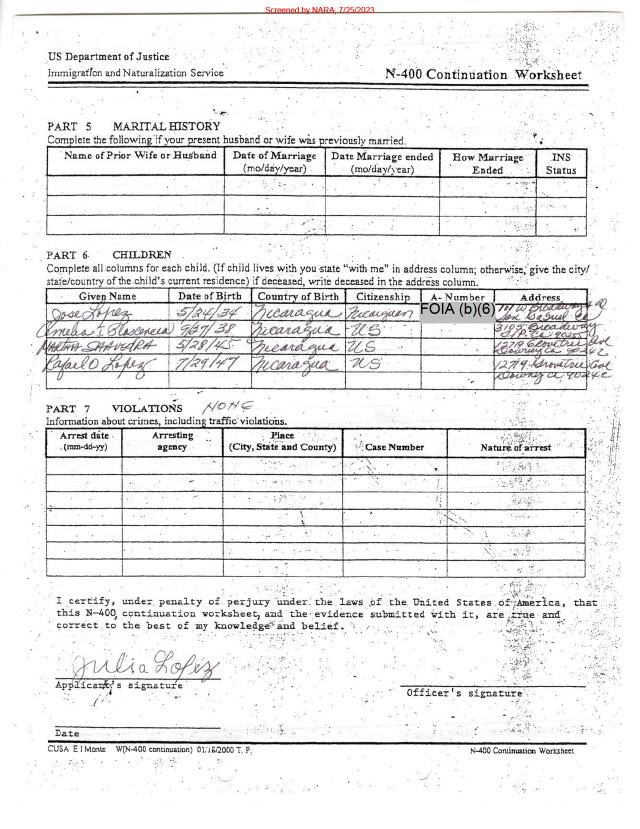 Screened by NARA, 7/25/2023
US Department of Justice
Immigration and Naturalization Service
N-400 Continuation Worksheet
PART 5 MARITAL HISTORY
Complete the following if your present husband or wife was previously married.
Name of Prior Wife or Husband Date of Marriage (mo/day/year) Date Marriage ended (mo/day/year) How Marriage Ended INS Status
PART 6 CHILDREN
Complete all columns for each child. (If child lives with you state "with me" in address column; otherwise, give the city/
state/country of the child's current residence) if deceased, write deceased in the address column.
Given Name Date of Birth Country of Birth Citizenship A- Number Address
Jose Lopez 5/24/34 Nicaragua FOIA (b)(6) W Broadway
Amelia 38 Nicaragua US 3195 Broadway
MARTHA SAAVEDRA 5/28/45 Nicaragua US 12719 Downey Ca 90242
Rafael O Lopez 7/29/47 Nicaragua US 12719 Downey Ca
PART 7 VIOLATIONS NONE
Information about crimes, including traffic violations.
Arrest date (mm-dd-yy) Arresting agency Place (City, State and County) Case Number Nature of arrest
I certify, under penalty of perjury under the laws of the United States of America, that
this N-400 continuation worksheet, and the evidence submitted with it, are true and
correct to the best of my knowledge and belief.
Julia Lopez
Applicant's signature
Officer's signature
Date
CUSA El Monte W(N-400 continuation) 01/18/2000 T. P. N-400 Continuation Worksheet